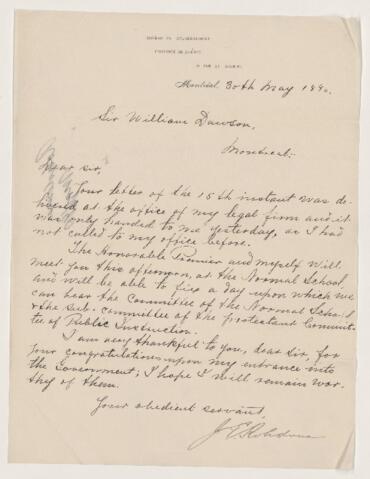 BUREAU DU GOUVERNEMENT
PROVINCE DE QUÉBEC
Montréal, 30th May 1890.
Sir William Dawson,
Montreal.
Dear Sir,
Your letter of the 15th instant was de-
livered at the office of my legal firm and it
was only handed to me yesterday, as I had
not called to my office before.
The Honorable Premier and myself will
meet you this afternoon, at the Normal School,
and will be able to fix a day upon which we
can hear the Committee of the Normal School
& the sub-committee of the protestant Committ-
tee of Public Instruction.
I am very thankful to you, dear Sir, for
your congratulations upon my entrance into
the Government; I hope I will remain wor-
thy of them.
Your obedient servant,
J E Robidoux